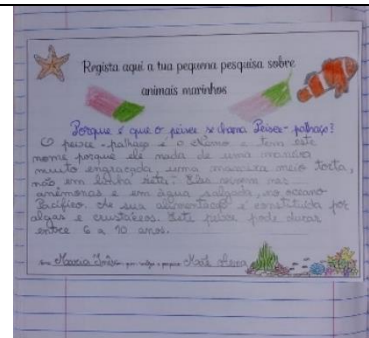 Regista aqui a tua pequena pesquisa sobre
animais marinhos
Porque é que o peixe se chama Peixe-palhaço?
O peixe-palhaço é o e tem este
nome porque ele nada de uma maneira
muito engraçada, uma meio torta,
não em linha reta. Elas nas
anêmonas e em água salgada, no oceano
Pacífico. A sua alimentação é constituída por
algas e crustáceos. Este peixe pode durar
entre 6 a 10 anos.
Maria